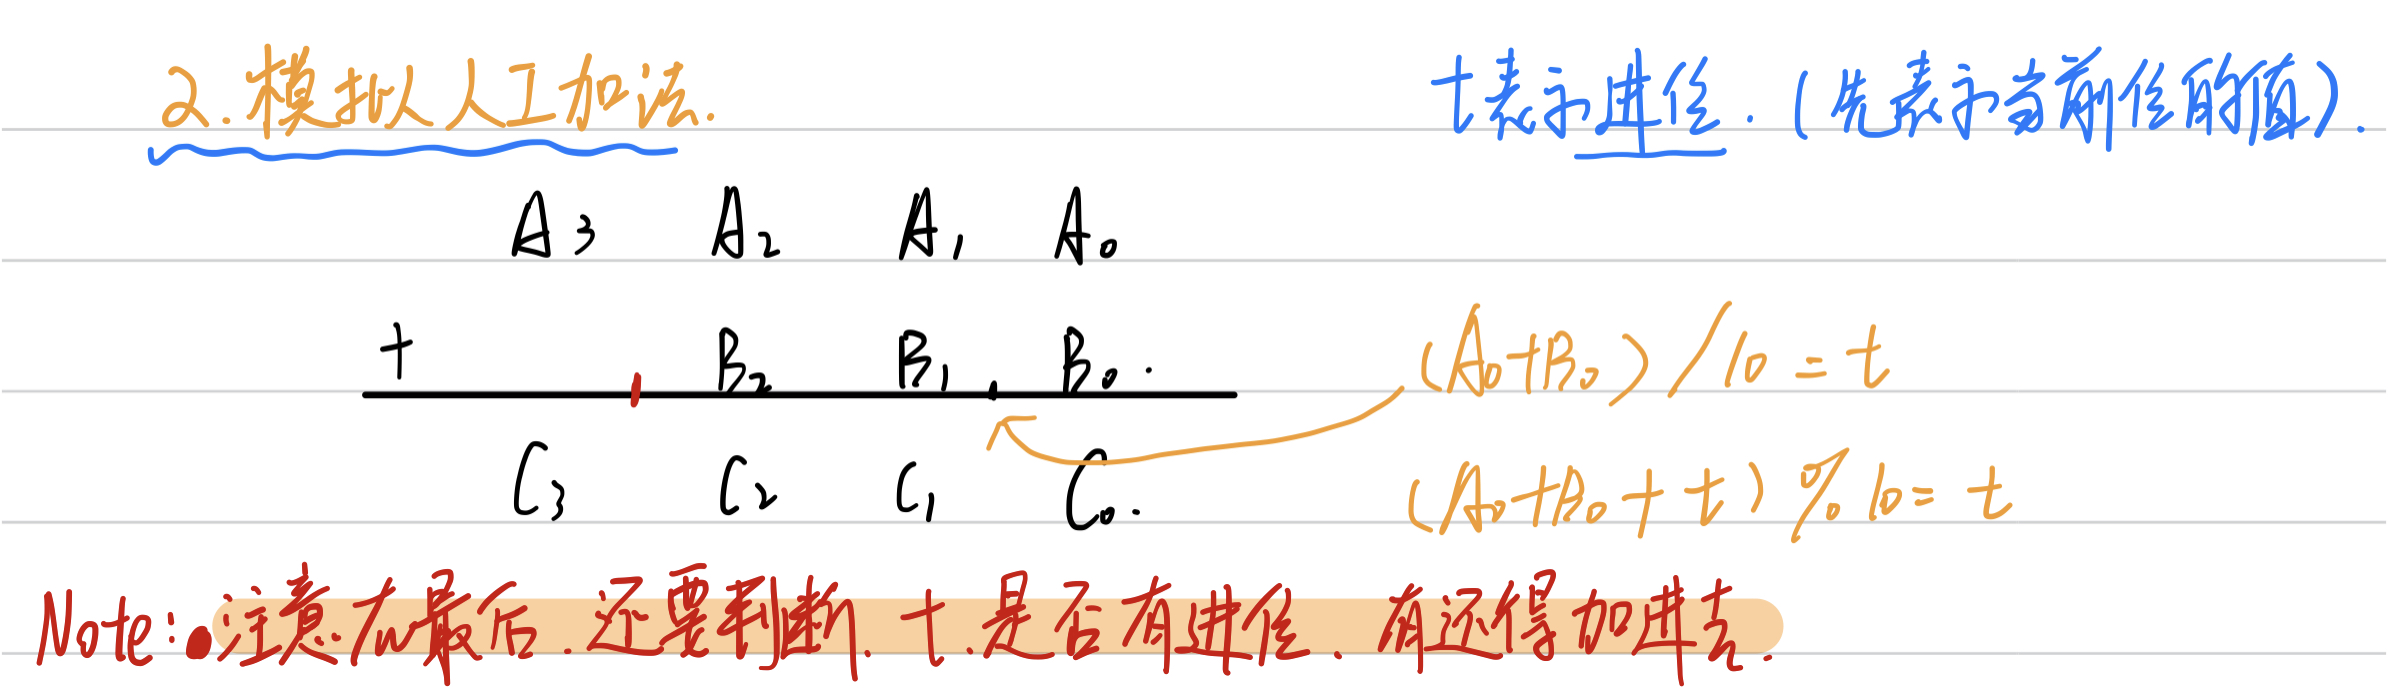 2.模拟人工加法.
t表示进位.(先表示当前位的值).
A3 A2 A1 A0
+ B2 B1 B0.
(A0+B0)/10=t
C3 C2 C1 C0.
(A0+B0+t)%10=t
Note:•注意在最后.还要判断.t.是否有进位.有还得加进去.